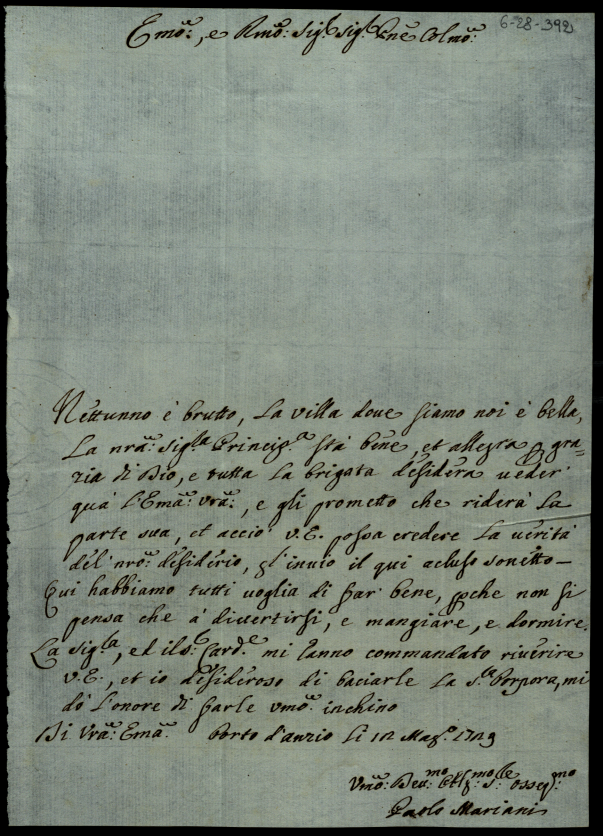 6-28-392
Emo:, e Rmo: Sigr: Sigr: Pne Colmo:
Nettunno è brutto, La villa dove siamo noi è bella,
La nra: Sigla Princip.a stà bene, et allegra p gra=
zia di Dio, e tutta La brigata desidera ueder
quà L'Ema: Vra:, e gli prometto che riderà La
parte sua, et acciò V.E. possa credere La uerità
del nro: desiderio, gl'inuio il qui acluso sonetto—
Qui habbiamo tutti uoglia di star bene, poche non si
pensa che à diuertirsi, e mangiare, e dormire.
La Sigla, ed il Sr Carde mi hanno commandato riuerire
V.E., et io desideroso di baciarle La S.ta Porpora, mi
dò L'onore di farle vmo: inchino
Di Vra: Ema: Porto d'anzio Li Mago: 1729
Vmo: Deumo Obligmo Se osseqmo
Paolo Mariani